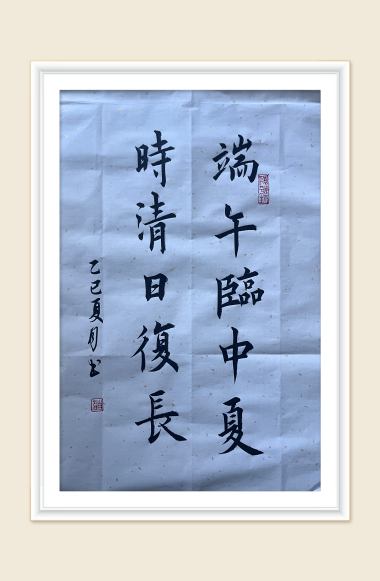 端午臨中夏
時清日復長
乙巳夏月书